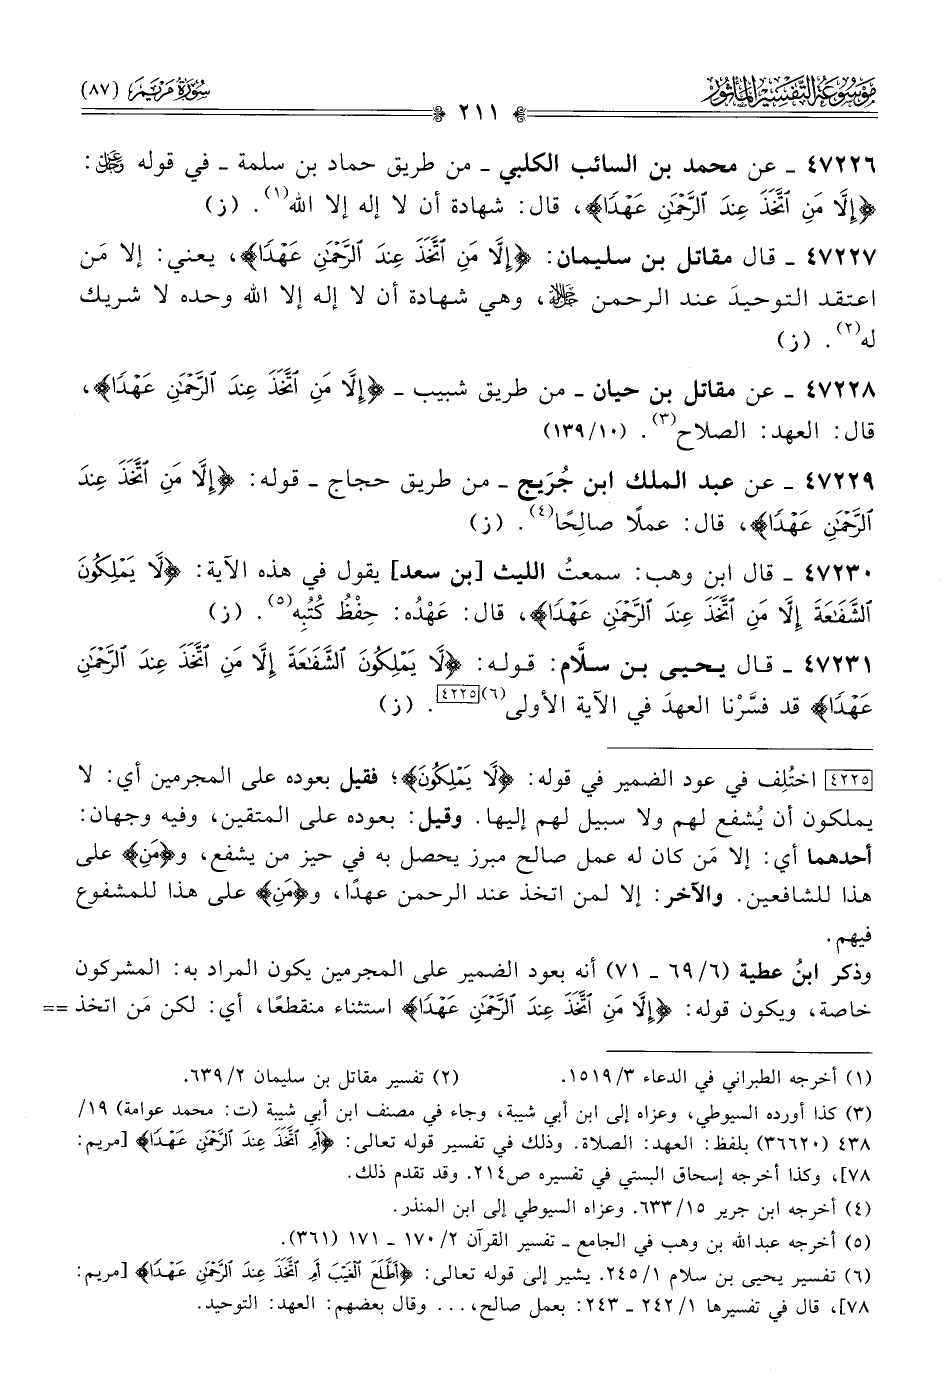 موسوعة التفسير المأثور
سورة مريم (٨٧)
٢١١
٤٧٢٢٦ ـ عن محمد بن السائب الكلبي ـ من طريق حماد بن سلمة ـ في قوله ﷿:
﴿إِلَّا مَنِ ٱتَّخَذَ عِندَ ٱلرَّحْمَٰنِ عَهْدًا﴾، قال: شهادة أن لا إله إلا الله(١). (ز)
٤٧٢٢٧ ـ قال مقاتل بن سليمان: ﴿إِلَّا مَنِ ٱتَّخَذَ عِندَ ٱلرَّحْمَٰنِ عَهْدًا﴾، يعني: إلا مَن
اعتقد التوحيدَ عند الرحمن ﷻ، وهي شهادة أن لا إله إلا الله وحده لا شريك
له(٢). (ز)
٤٧٢٢٨ ـ عن مقاتل بن حيان ـ من طريق شبيب ـ ﴿إِلَّا مَنِ ٱتَّخَذَ عِندَ ٱلرَّحْمَٰنِ عَهْدًا﴾،
قال: العهد: الصلاح(٣). (١٠/ ١٣٩)
٤٧٢٢٩ ـ عن عبد الملك ابن جُرَيج ـ من طريق حجاج ـ قوله: ﴿إِلَّا مَنِ ٱتَّخَذَ عِندَ
ٱلرَّحْمَٰنِ عَهْدًا﴾، قال: عملًا صالِحًا(٤). (ز)
٤٧٢٣٠ ـ قال ابن وهب: سمعتُ الليث [بن سعد] يقول في هذه الآية: ﴿لَّا يَمْلِكُونَ
ٱلشَّفَٰعَةَ إِلَّا مَنِ ٱتَّخَذَ عِندَ ٱلرَّحْمَٰنِ عَهْدًا﴾، قال: عَهْدُه: حِفْظُ كُتُبِه(٥). (ز)
٤٧٢٣١ ـ قال يحيى بن سلَّام: قوله: ﴿لَّا يَمْلِكُونَ ٱلشَّفَٰعَةَ إِلَّا مَنِ ٱتَّخَذَ عِندَ ٱلرَّحْمَٰنِ
عَهْدًا﴾ قد فسَّرْنا العهدَ في الآية الأولى(٦)[٤٢٢٥]. (ز)
[٤٢٢٥] اختُلِف في عود الضمير في قوله: ﴿لَّا يَمْلِكُونَ﴾؛ فقيل بعوده على المجرمين أي: لا
يملكون أن يُشفع لهم ولا سبيل لهم إليها. وقيل: بعوده على المتقين، وفيه وجهان:
أحدهما أي: إلا مَن كان له عمل صالح مبرز يحصل به في حيز من يشفع، و﴿مَنِ﴾ على
هذا للشافعين. والآخر: إلا لمن اتخذ عند الرحمن عهدًا، و﴿مَنِ﴾ على هذا للمشفوع
فيهم.
وذكر ابنُ عطية (٦/ ٦٩ ـ ٧١) أنه بعود الضمير على المجرمين يكون المراد به: المشركون
خاصة، ويكون قوله: ﴿إِلَّا مَنِ ٱتَّخَذَ عِندَ ٱلرَّحْمَٰنِ عَهْدًا﴾ استثناء منقطعًا، أي: لكن مَن اتخذ ==
(١) أخرجه الطبراني في الدعاء ٣/ ١٥١٩. (٢) تفسير مقاتل بن سليمان ٢/ ٦٣٩.
(٣) كذا أورده السيوطي، وعزاه إلى ابن أبي شيبة، وجاء في مصنف ابن أبي شيبة (ت: محمد عوامة) ١٩/
٤٣٨ (٣٦٦٢٠) بلفظ: العهد: الصلاة. وذلك في تفسير قوله تعالى: ﴿أَمِ ٱتَّخَذَ عِندَ ٱلرَّحْمَٰنِ عَهْدًا﴾ [مريم:
٧٨]، وكذا أخرجه إسحاق البستي في تفسيره ص٢١٤. وقد تقدم ذلك.
(٤) أخرجه ابن جرير ١٥/ ٦٣٣. وعزاه السيوطي إلى ابن المنذر.
(٥) أخرجه عبدالله بن وهب في الجامع ـ تفسير القرآن ٢/ ١٧٠ ـ ١٧١ (٣٦١).
(٦) تفسير يحيى بن سلام ١/ ٢٤٥. يشير إلى قوله تعالى: ﴿أَطَّلَعَ ٱلْغَيْبَ أَمِ ٱتَّخَذَ عِندَ ٱلرَّحْمَٰنِ عَهْدًا﴾ [مريم:
٧٨]، قال في تفسيرها ١/ ٢٤٢ ـ ٢٤٣: بعمل صالح، ... وقال بعضهم: العهد: التوحيد.